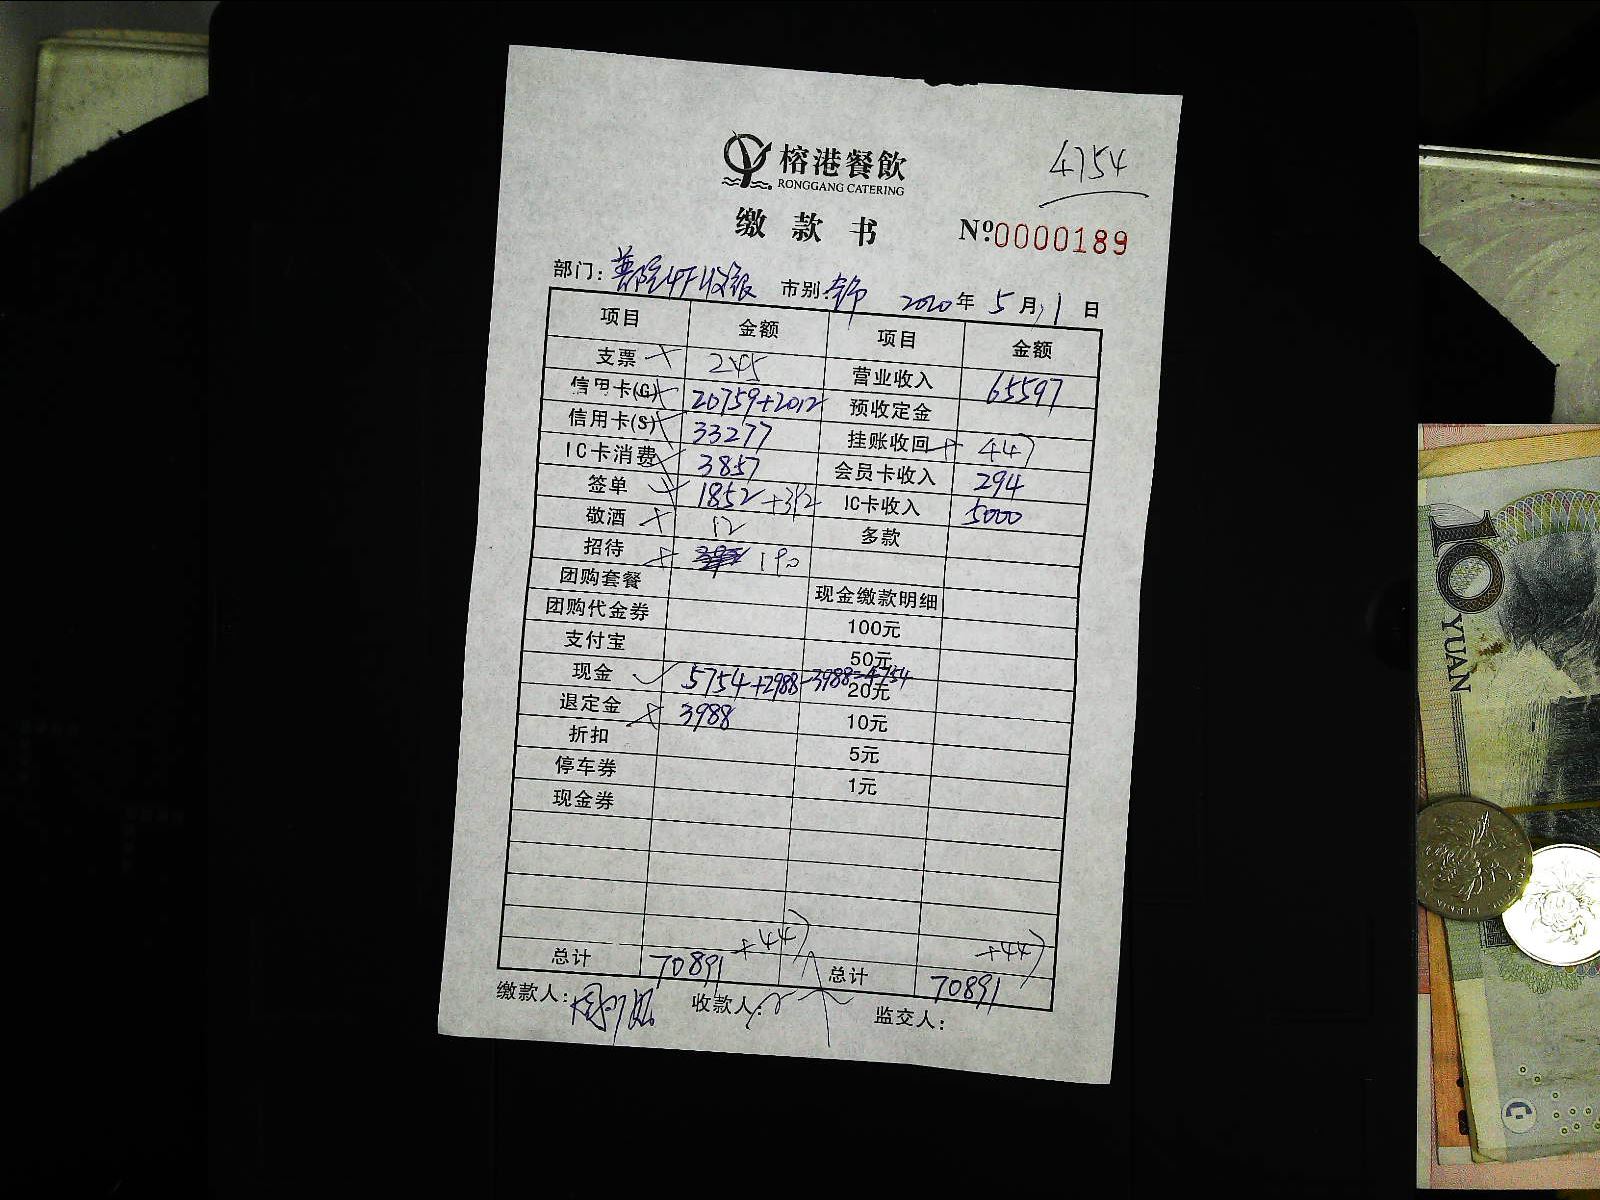 榕港餐飲
RONGGANG CATERING
4754
缴款书
№0000189
部门: 市别: 2020年5月11日
项目 金额 项目 金额
支票 245 营业收入 65597
信用卡(G) 20759+2012 预收定金
信用卡(S) 33277 挂账收回 + 447
IC卡消费 3857 会员卡收入 294
签单 1852+312 IC卡收入 5000
敬酒 12 多款
招待 190
团购套餐 现金缴款明细
团购代金券 100元
支付宝 50元
现金 5754+2988-3988=4754 20元
退定金 3988 10元
折扣 5元
停车券 1元
现金券
+447 +447
总计 70891 总计 70891
缴款人: 收款人: 监交人:
10 YUAN